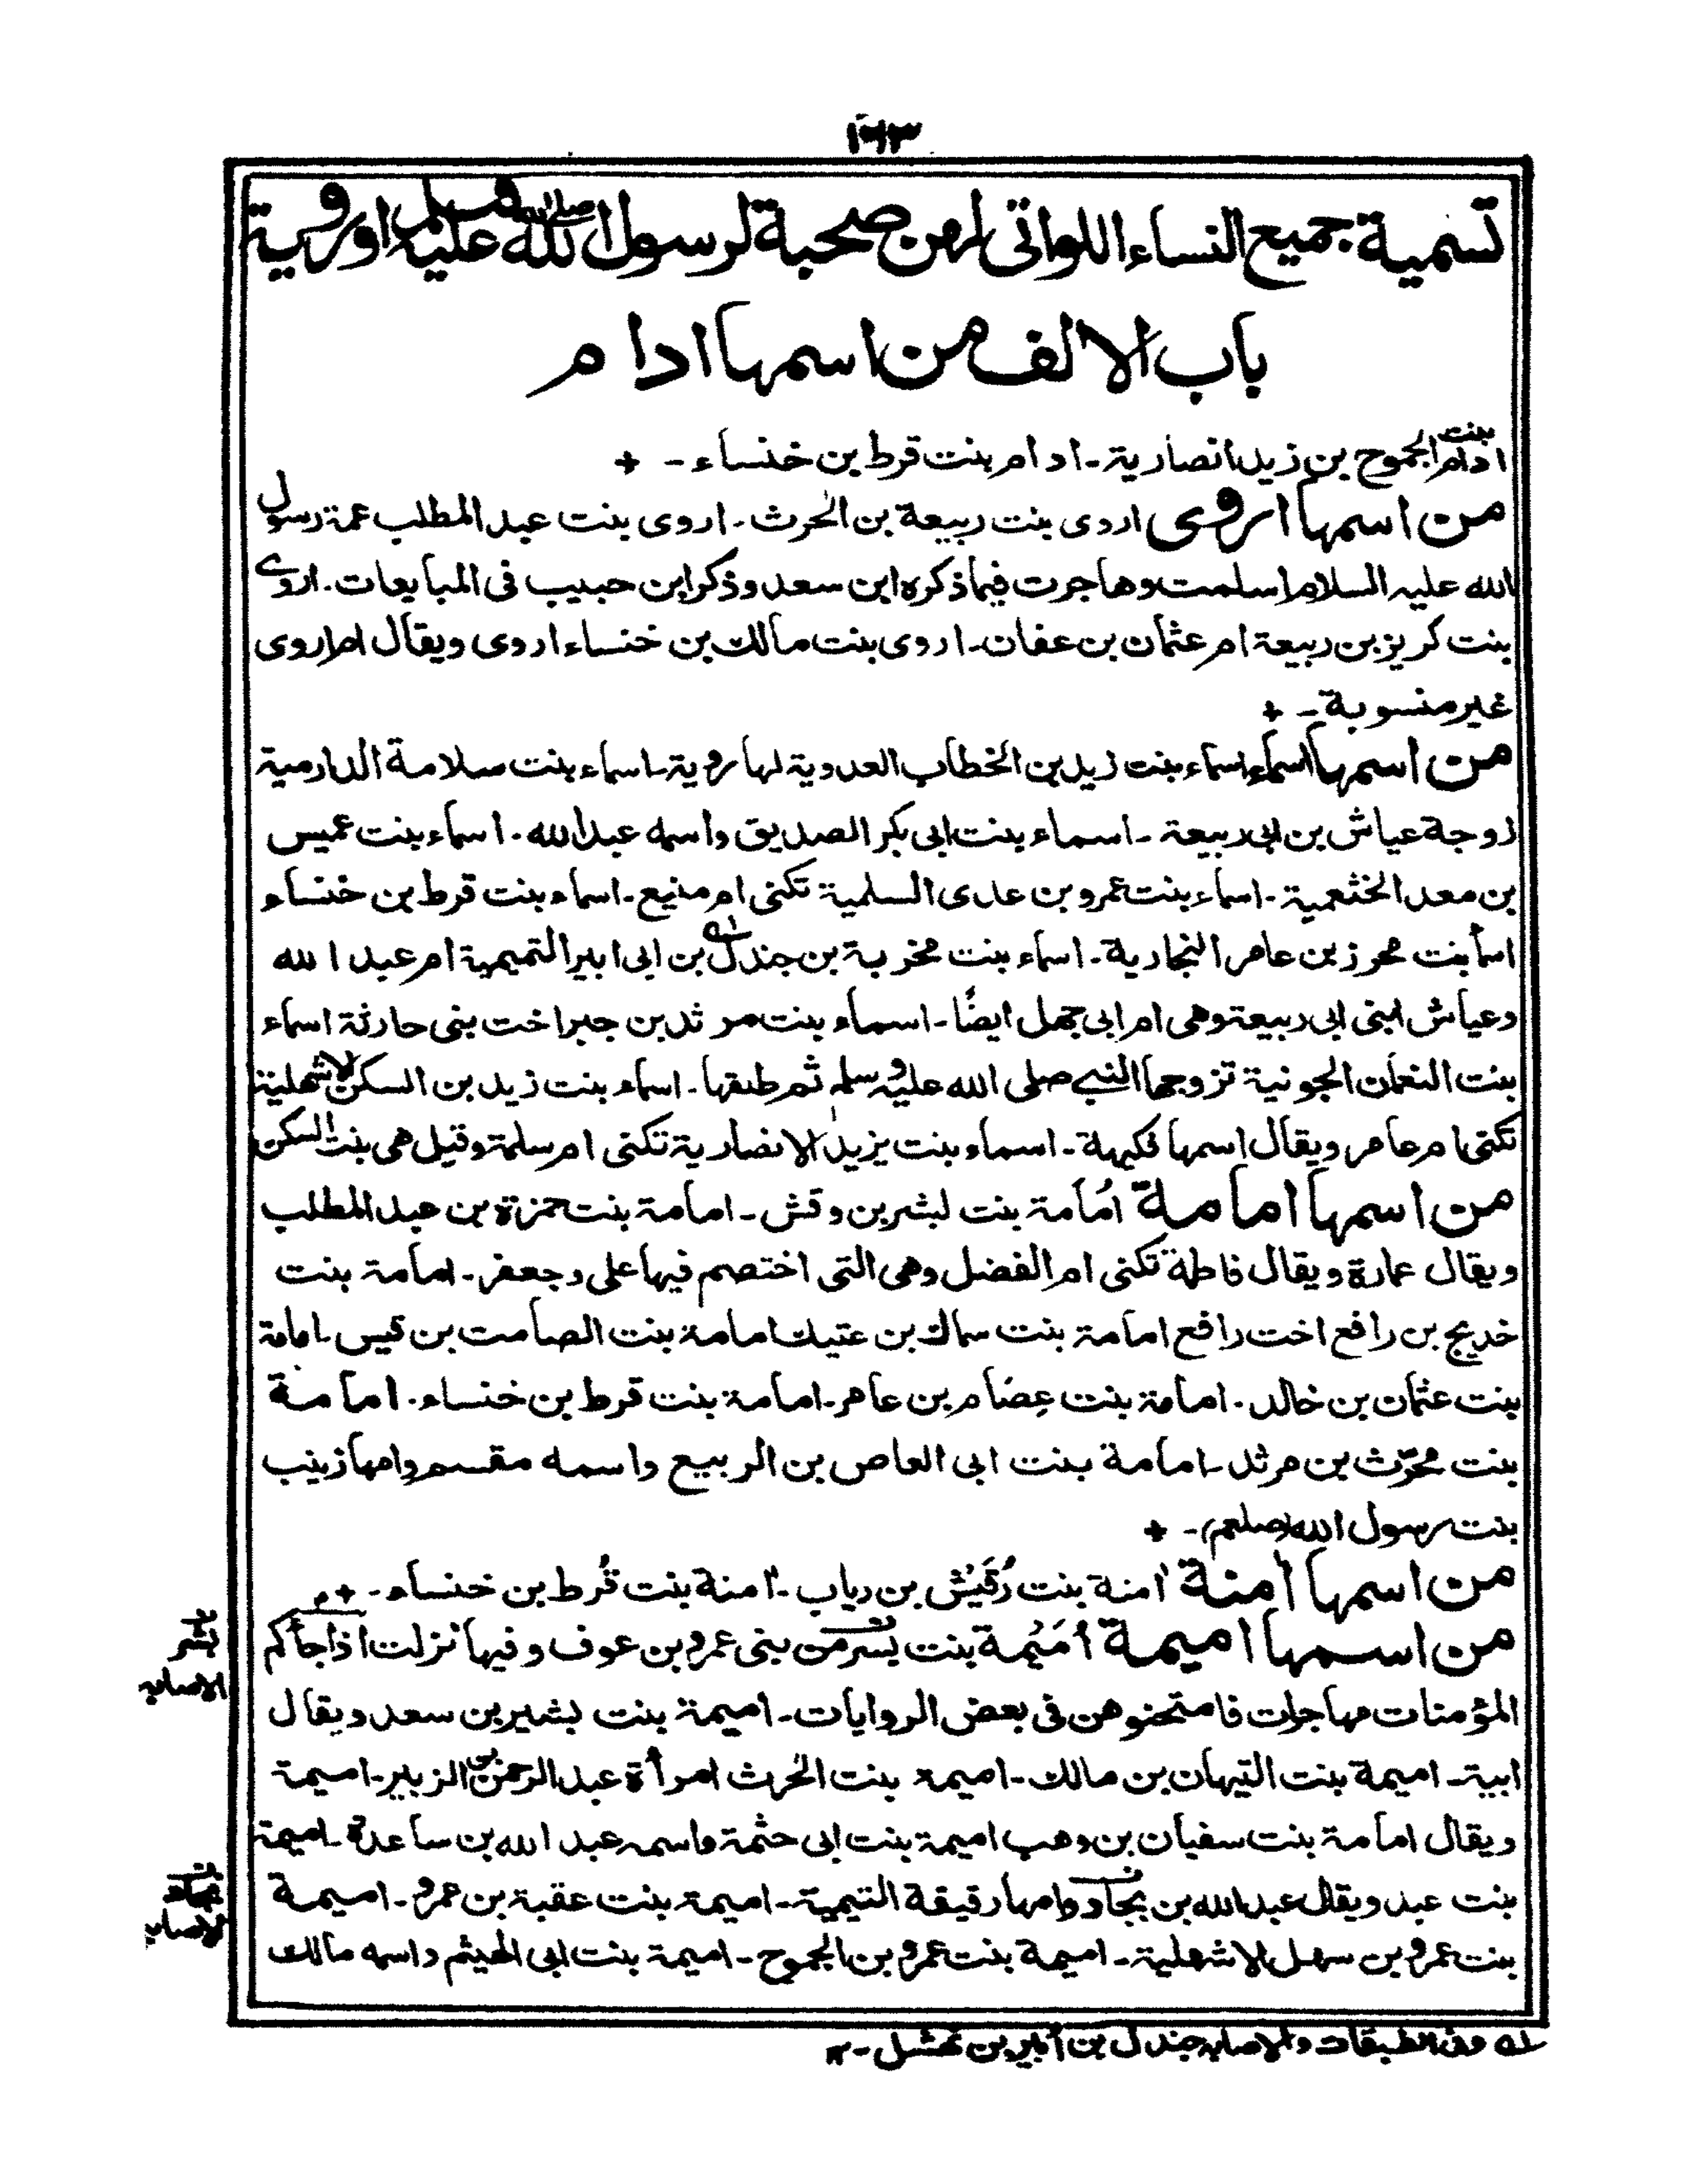 ١٦٣
تسمية جميع النساء اللواتى لهن صحبة لرسول الله صلى الله عليه وسلم او روية
باب الالف من اسمها ادام
ادام بنت الجموح بن زيد انصارية - ادام بنت قرط بن خنساء - +
من اسمها اروى اروى بنت ربيعة بن الحرث - اروى بنت عبد المطلب عمة رسول
الله عليه السلام اسلمت وهاجرت فيما ذكره ابن سعد وذكر ابن حبيب فى المبايعات - اروى
بنت كريز بن ربيعة ام عثمان بن عفان - اروى بنت مالك بن خنساء اروى ويقال ام اروى
غير منسوبة - +
من اسمها اسماء اسماء بنت زيد بن الخطاب العدوية لها روية - اسماء بنت سلامة الدارمية
زوجة عياش بن ابى ربيعة - اسماء بنت ابى بكر الصديق واسمه عبد الله - اسماء بنت عميس
بن معد الخثعمية - اسماء بنت عمرو بن عدى السلمية تكنى ام منيع - اسماء بنت قرط بن خنساء
اسما بنت محرز بن عامر النجارية - اسماء بنت مخربة بن جندل بن ابى ابير التميمية ام عبد الله
وعياش ابنى ابى ربيعة وهى ام ابى جهل ايضًا - اسماء بنت مرثد بن جبر اخت بنى حارثة اسماء
بنت النعمان الجونية تزوجها النبى صلى الله عليه وسلم ثم طلقها - اسماء بنت زيد بن السكن الاشهلية
تكنى ام عامر ويقال اسمها فكيهة - اسماء بنت يزيد الانصارية تكنى ام سلمة وقيل هى بنت السكن
من اسمها امامة اُمامة بنت لبشر بن وقش - امامة بنت حمزة بن عبد المطلب
ويقال عمارة ويقال فاطمة تكنى ام الفضل وهى التى اختصم فيها على وجعفر - امامة بنت
خديج بن رافع اخت رافع امامة بنت سماك بن عتيك امامة بنت الصامت بن قيس - امامة
بنت عثمان بن خالد - امامة بنت عِصَام بن عامر - امامة بنت قرط بن خنساء - امامة
بنت محرّث بن مرثد - امامة بنت ابى العاص بن الربيع واسمه مقسم وامها زينب
بنت رسول الله (صلعم) - +
من اسمها اٰمنة اٰمنة بنت رُقَيْش بن رياب - اٰمنة بنت قُرط بن خنساء - +
من اسمها اميمة اُمَيْمة بنت بسر من بنى عمرو بن عوف وفيها نزلت اذا جأكم
المؤمنات مهاجرات فامتحنوهن فى بعض الروايات - اميمة بنت بشير بن سعد ويقال
ابية - اميمة بنت التيهان بن مالك - اميمة بنت الحرث امرأة عبد الرحمن بن الزبير - اميمة
ويقال امامة بنت سفيان بن وهب اميمة بنت ابى حثمة واسمه عبد الله بن ساعدة - اميمة
بنت عبد ويقال عبد الله بن بجاد وامها رقيقة التيمية - اميمة بنت عقبة بن عمرو - اميمة
بنت عمرو بن سهل الاشهلية - اميمة بنت عمرو بن الجموح - اميمة بنت ابى الهيثم واسمه مالك
بشر
الاصابه
بجاد
الاصابه
له وفى الطبقات والاصابه جندل بن أبير بن نهشل - ١٢